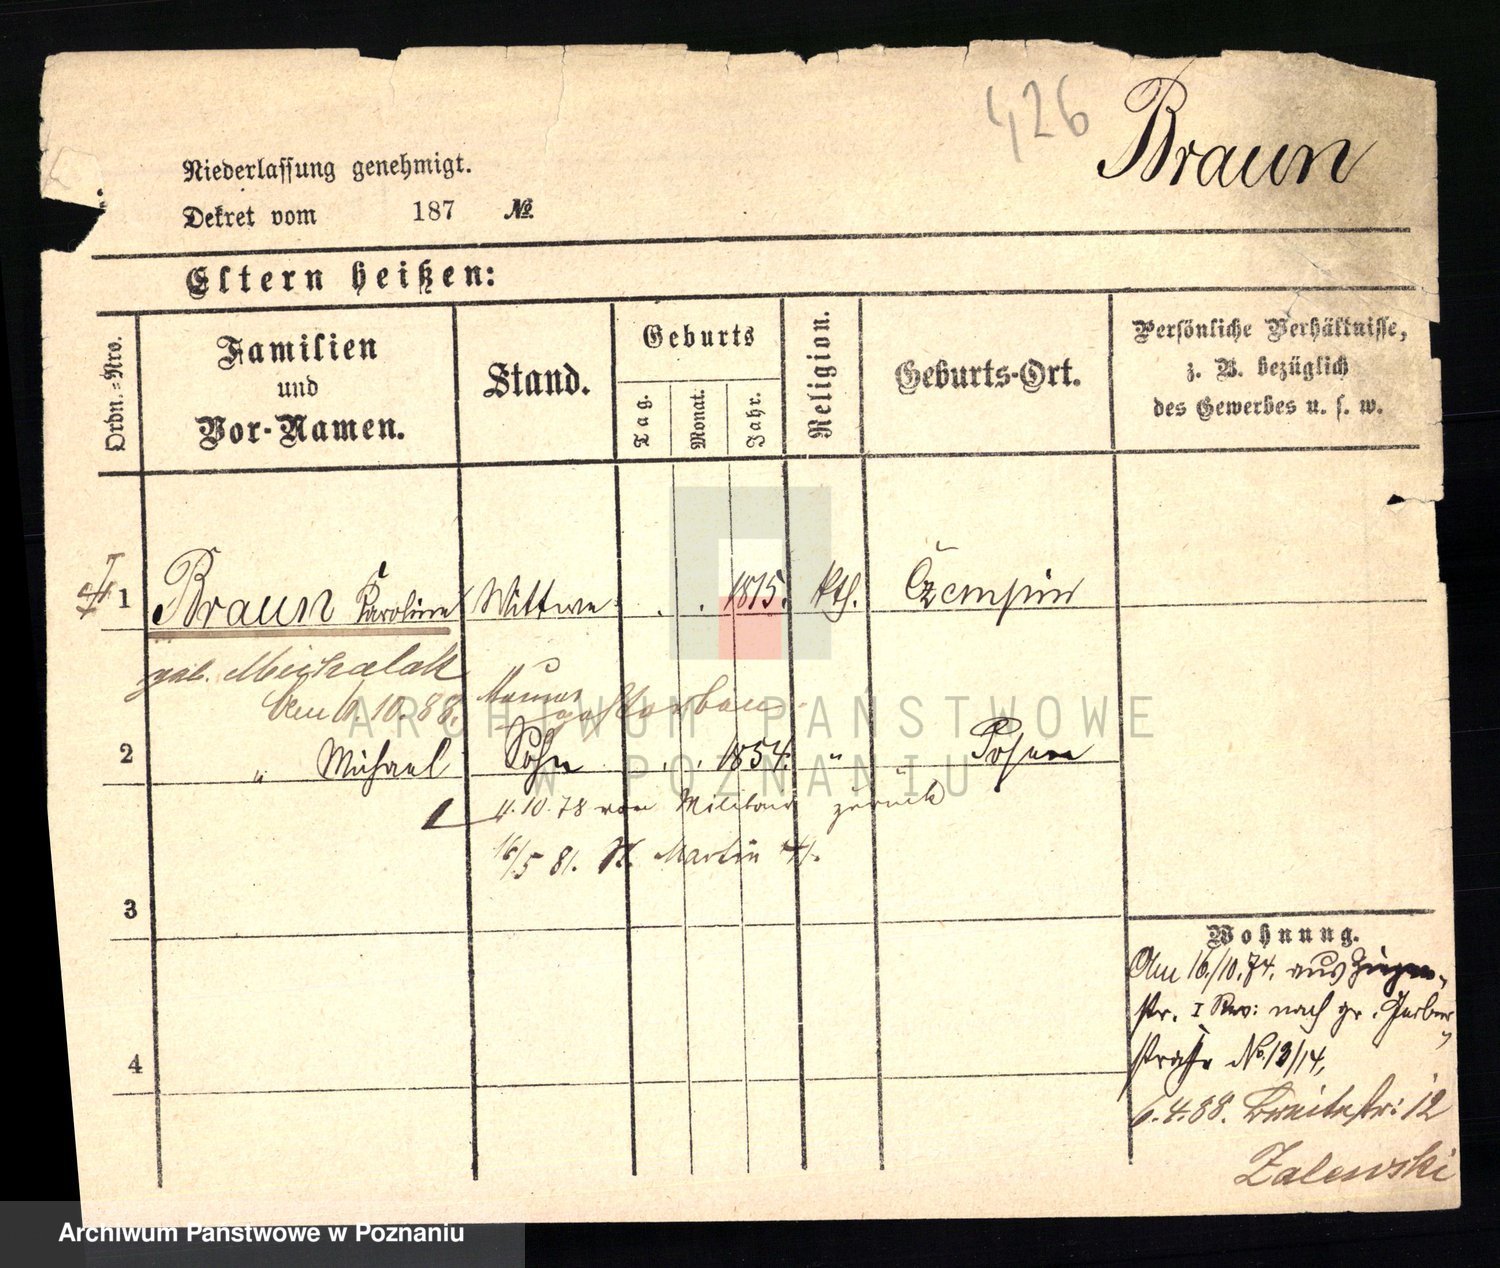 426 Braun
Niederlassung genehmigt.
Dekret vom 187 №
Eltern heißen:
Ordn.=Nro.
Familien
und
Vor-Namen.
Stand.
Geburts
Tag.
Monat.
Jahr.
Religion.
Geburts-Ort.
Persönliche Verhältnisse,
z. B. bezüglich
des Gewerbes u. s. w.
1 Braun Karoline Wittwe . . 1815. kth. Czempin
geb. Michalak
10. 88. gestorben
2 " Michael Sohn . . 1854. " Posen
4. 10. 78 vom Militair zurück
16/5 81. St. Martin
3
4
Wohnung.
Am 16./10. 74. aus Ziegen-
str. I Rev: nach gr. Gerber
straße No. 13/14,
6. 4. 88. Breitestr: 12
Zalewski
ARCHIWUM PAŃSTWOWE
W POZNANIU
Archiwum Państwowe w Poznaniu